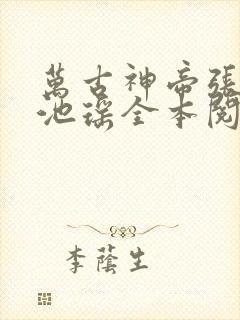 萬古神帝張
池瑤全本閱
李蔭生